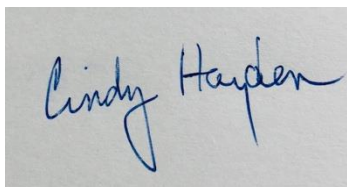 Cindy Hayden